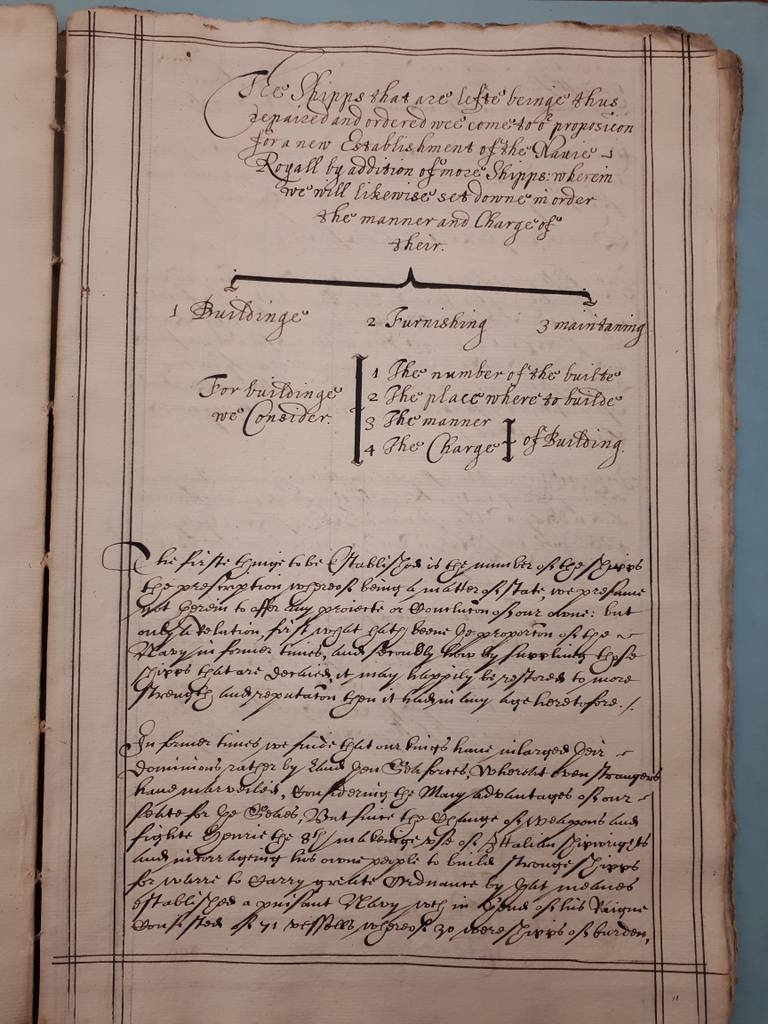 The Shipps that are lefte beinge thus
repaired and ordered wee come to oʳ proposicion
for a new Establishment of the Navie
Royall by addition of more Shipps: wherein
we will likewise set downe in order
the manner and Charge of
their.
1 Buildinge 2 Furnishing 3 maintaning
For buildinge we Consider.
1 The number of the builte
2 The place where to builde
3 The manner
4 The Charge
of Building.
The firste thinge to be Established is the number of the shipps
the prescription whereof being a matter of state, we presume
not herein to offer any proiecte or Conclucon of our owne: but
only a relation, first what hath beene ye proporcon of the
Navy in former times, and secondly how by supplying those
shipps that are decaied, it may happily be restored to more
strength and reputacon then it had in any age heretofore ./.
In former times we finde that our kings have inlarged their
dominions rather by Land then Sea forces, Whereat even strangers
have marveiled, Considering the Many advantages of our
seate for ye Seaes, But since the Change of weapons and
fighte Henrie the 8th makeinge use of Italian shipwrights
and incorrageing his owne people to build stronge shipps
for warre to Carry greate Ordnance by that meanes
established a puisant Navy wch in ye end of his Raigne
Consisted of 71 vessells whereof 30 were shipps of burden,